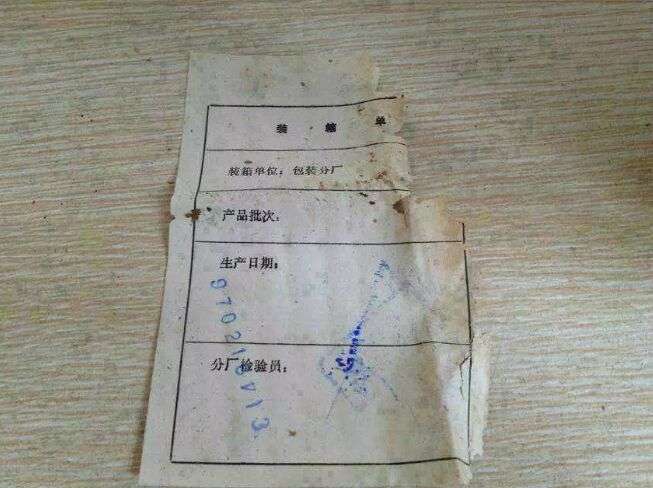 装箱单
装箱单位：包装分厂
产品批次：
生产日期：
分厂检验员：